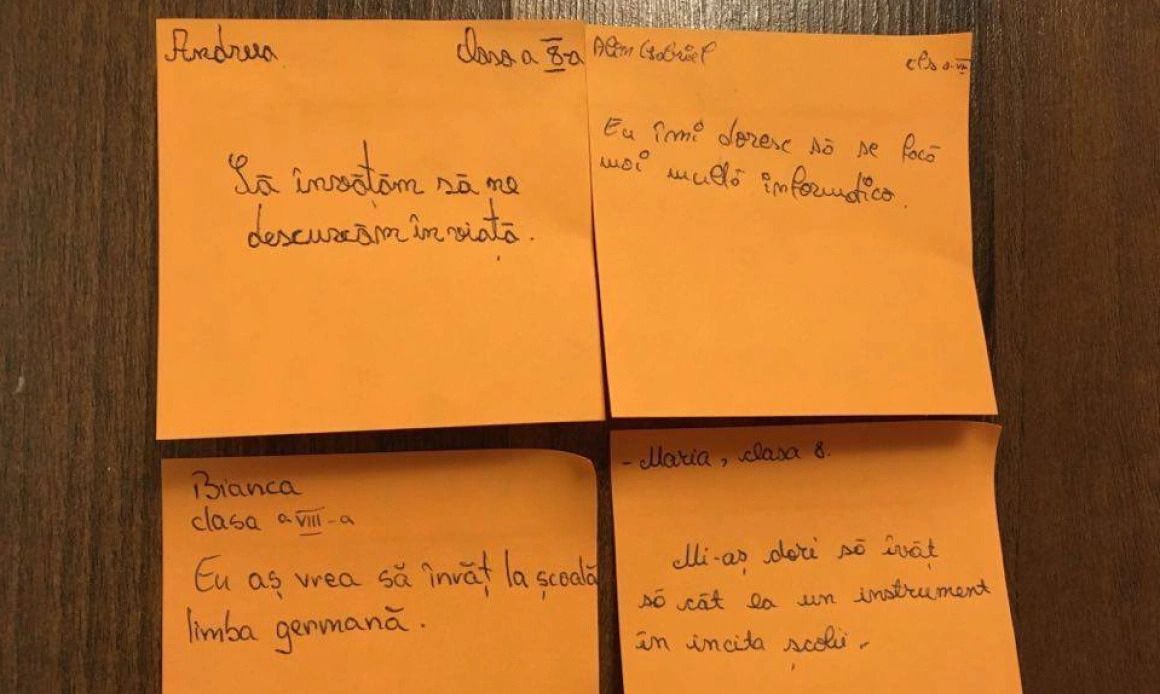 Andreea
clasa a 8-a
Să învățăm să ne
descurcăm în viață.
Alin Gabriel
cls a VIII
Eu îmi doresc să se facă
mai multă informatica.
Bianca
clasa a VIII-a
Eu aș vrea să învăț la școală
limba germană.
- Maria, clasa 8.
Mi-aș dori să îvăț
să cât la un instrument
în incita școlii.